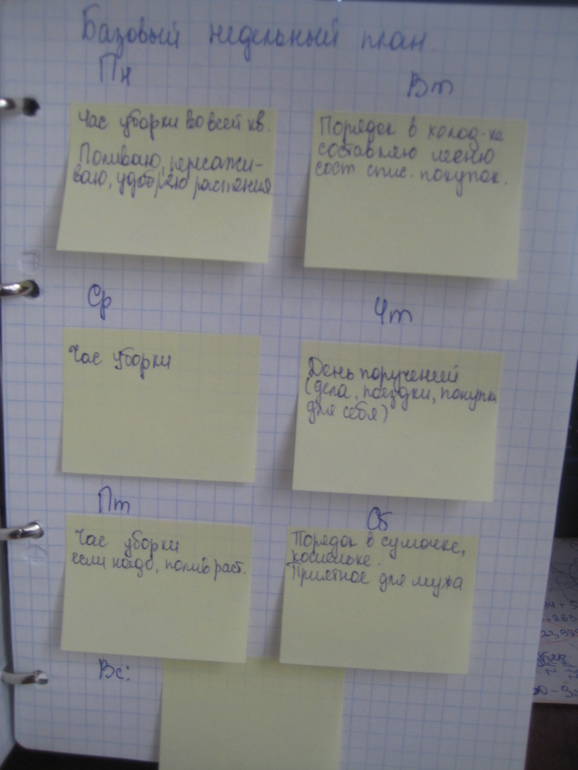 Базовый недельный план
Пн
Час уборки во всей кв.
Поливаю, пересажи-
ваю, удобряю растения
Вт
Порядок в холод-ке
составляю меню
сост. спис. покупок.
Ср
Час уборки
Чт
День поручений
(дела, поездки, покупки
для себя)
Пт
Час уборки
если надо, полив раст.
Сб
Порядок в сумочке,
кошельке.
Приятное для мужа
Вс: